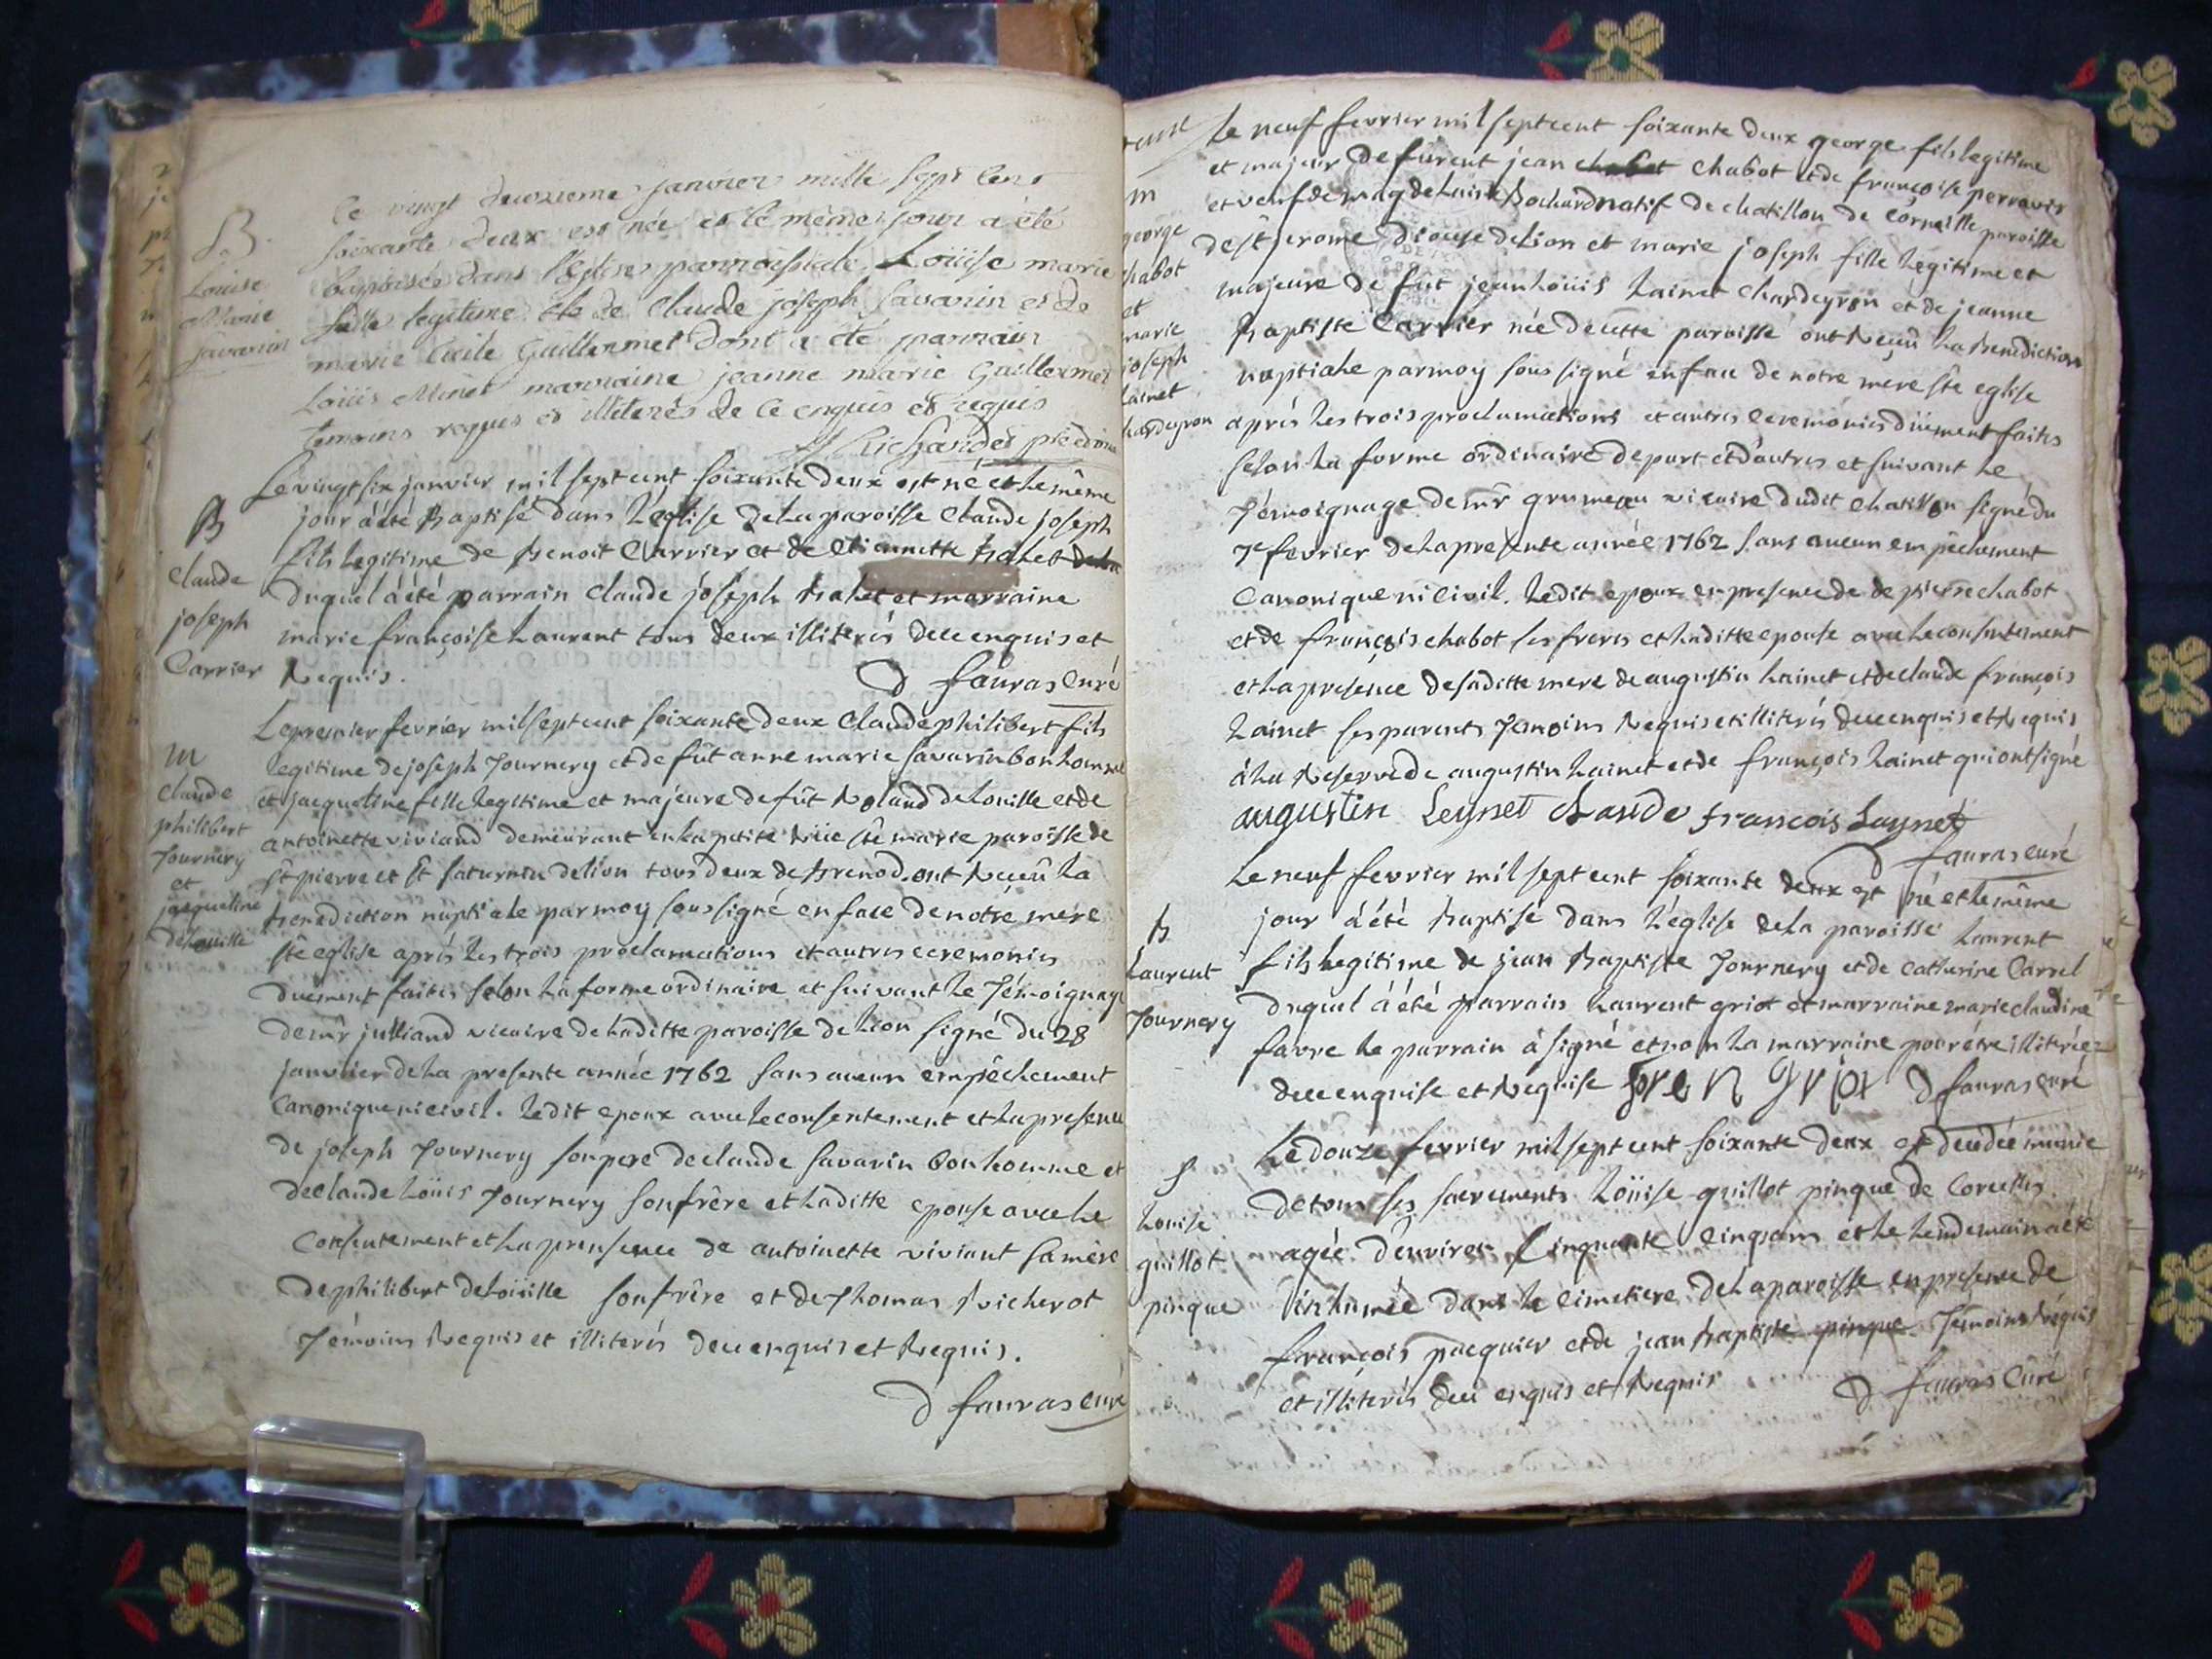 B.
Louise
Marie
Savarin
Le vingt deuxieme janvier mille sept cent
soixante deux est née et le même jour a été
baptisée dans l'Eglise parroissiale Loüise marie
fille legitime de Claude joseph Savarin et de
marie Cecile Guillermet dont a été parrain
Loüis Minet marraine jeanne marie Guillermet
temoins requis et illiterés de ce enquis et requis
B
claude
joseph
Carrier
Le vingt six janvier mil sept cent soixante deux est né et le même
jour à été Baptisé dans L'église de La paroisse Claude joseph
fils legitime de Benoit Carrier et de Etiennette Balet
Duquel à été parrain Claude joseph Balet et marraine
marie françoise Laurent tous deux illiterés de ce enquis et
Requis.
D fauras Curé
M
claude
philibert
Journery
et
jacqueline
deLouille
Le premier fevrier mil sept cent soixante deux Claude philibert fils
legitime de joseph Journery et de fût anne marie savarin bonhomme
et jacqueline fille legitime et majeure de fût Roland deLouille et de
antoinette viviand demeurant en la petite Rüe ste marie paroisse de
st pierre et st saturnin de lion tous deux de Brenod. ont Reçeû La
Benediction nuptiale par moy sous signé en face de notre mere
ste eglise après Les trois proclamations et autres ceremonies
düement faites selon La forme ordinaire et suivant Le Témoignage
de mr julliand vicaire de Laditte paroisse de Lion signé du 28
janvier de La presente année 1762 sans aucun empêchement
Canonique ni civil. Ledit epoux avec le consentement et La presence
de joseph Journery son pere de claude savarin bonhomme et
de claude Loüis Journery son frère et Laditte epouse avec Le
Consentement et La prensence de antoinette viviant sa mère
de philibert deLoüille son frère et de Thomas Richerot
Témoins Requis et illiterés de ce enquis et Requis.
D fauras curé
M
george
chabot
et
marie
joseph
Lainet
chardeyron
Le neuf fevrier mil sept cent soixante deux george fils legitime
et majeur de furent jean chabot Chabot et de françoise perravis
et veuf de magdeLaine Bochard natif de chatillon de Corneille paroisse
de st jerome diocese de Lion et marie joseph fille Legitime et
majeure de fut jean Loüis Lainet chardeyron et de jeanne
Baptiste Carrier née de cette paroisse ont Reçeû La Benediction
nuptiale par moy sous signé en face de notre mere ste eglise
après Les trois proclamations et autres ceremonies düement faites
selon La forme ordinaire de part et d'autres et suivant Le
Témoignage de mr grumeau vicaire dudit chatillon signé du
7e fevrier de La presente année 1762 sans aucun empêchement
Canonique ni Civil. Ledit epoux en presence de de pierre chabot
et de françois chabot ses freres et Laditte epouse avec Le consentement
et La presence de saditte mere de augustin Lainet et de claude françois
Lainet ses parents Temoins Requis et illiterés de ce enquis et Requis
à La Reserve de augustin Lainet et de françois Lainet qui ont signé
augustin Leynet Claude francois Laynet
D fauras curé
B
Laurent
Journery
Le neuf fevrier mil sept cent soixante deux est né et le même
jour à été Baptisé dans L'église de La paroisse Laurent
fils Legitime de jean Baptiste Journery et de Catherine Carrel
Duquel à été parrain Laurent griot et marraine marie claudine
favre Le parrain à signé et non La marraine pour être illiterée
de ce enquise et Requise D fauras curé
S
Louise
guillot
pinque
Le douze fevrier mil sept cent soixante deux est decedée munie
de tous ses sacrements Loüise guillot pinque de Corcelles
agée d'environ Cinquante Cinq ans et Le Lendemain à été
inhumée dans Le Cimetiere de La paroisse en presence de
françois pacquier et de jean Baptiste pinque Témoins Requis
et illiterés de ce enquis et Requis
D fauras Curé